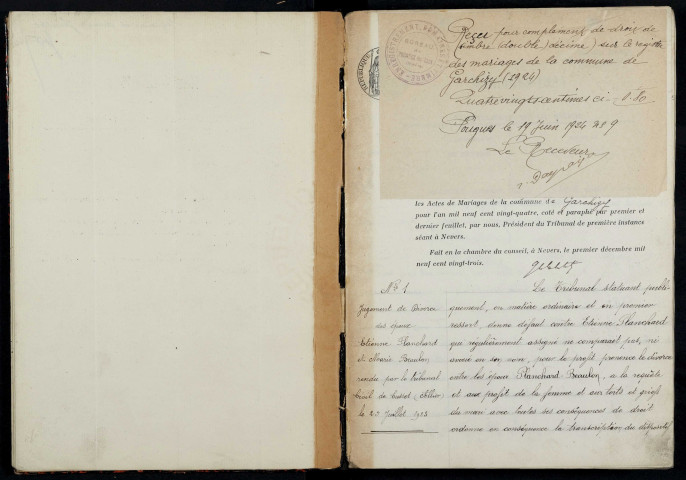 Reçu pour complément de droit de
timbre (double décime) sur le registre
des mariages de la commune de
Garchizy (1924)
Quatre vingts centimes ci 0.80
Pougues le 19 Juin 1924 n° 9
Le Receveur
les Actes de Mariages de la commune de Garchizy
pour l'an mil neuf cent vingt-quatre, coté et paraphé par premier et
dernier feuillet, par nous, Président du Tribunal de première instance
séant à Nevers.
Fait en la chambre du conseil, à Nevers, le premier décembre mil
neuf cent vingt-trois.
N° 1
Jugement de Divorce
des époux
Etienne Planchard
et Marie Beaulon
rendu par le tribunal
Civil de Cusset (Allier)
le 20 Juillet 1923
Le Tribunal statuant publi-
quement, en matière ordinaire et en premier
ressort, donne défaut contre Etienne Planchard
qui régulièrement assigné ne comparait pas, ni
avoué en son nom, pour le profit prononce le divorce
entre les époux Planchard Beaulon, a la requête
et aux profit de la femme et aux torts et griefs
du mari avec toutes ses conséquences de droit
ordonne en conséquence la transcription du dispositif